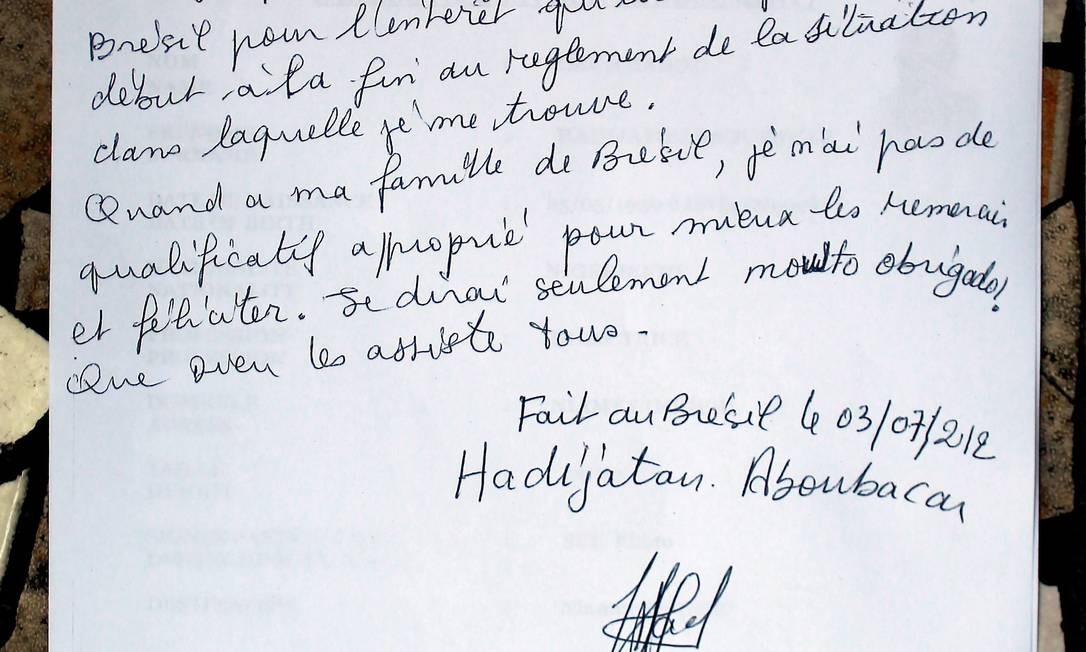 Brésil pour l'enterêt
début à la fin au reglement de la situation
dans laquelle je me trouve.
Quand a ma famille de Brésil, je n'ai pas de
qualificatif approprié pour mieux les remercier
et féliciter. Je dirai seulement moulto obrigado!
Que Dieu les assiste tous -
Fait au Brésil le 03/07/212
Hadijatou. Aboubacar